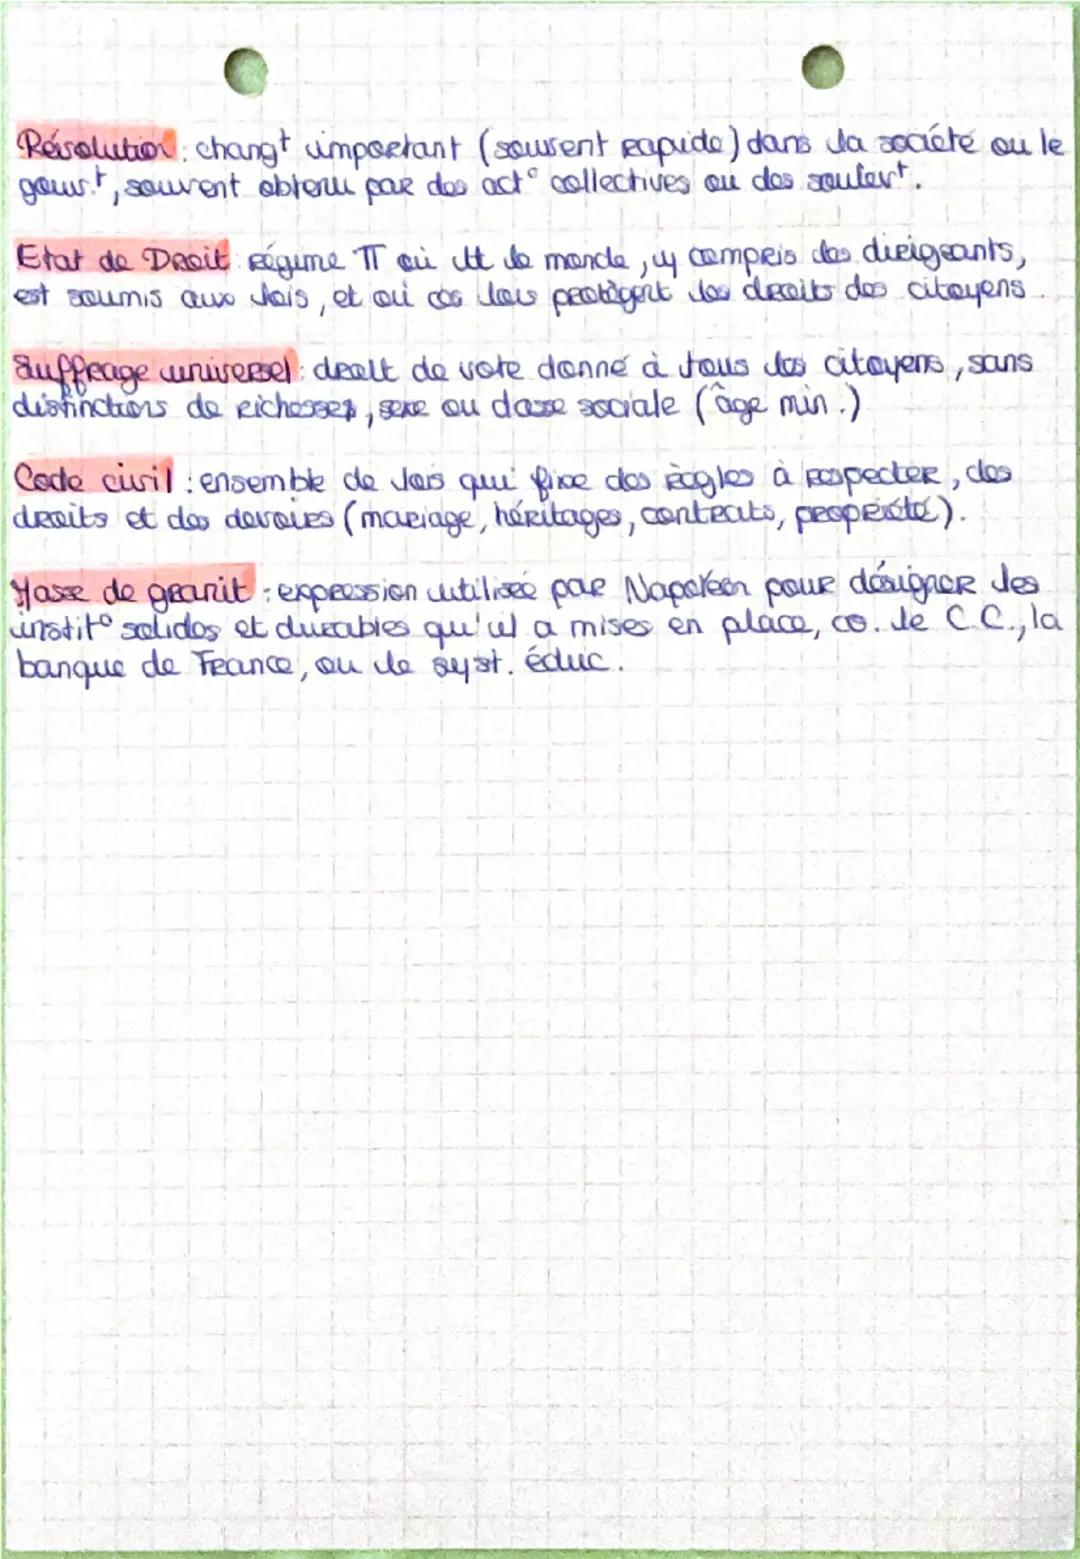 Révolution : chang^t important (souvent rapide) dans la société ou le
gouv.^t, souvent obtenu par des act° collectives ou des soulev^t.
Etat de Droit : régime π où tt le monde, y compris les dirigeants,
est soumis aux lois, et où ces lois protègent les droits des citoyens.
Suffrage universel : droit de vote donné à tous les citoyens, sans
distinctions de richesses, sexe ou classe sociale (âge min.)
Code civil : ensemble de lois qui fixe des règles à respecter, des
droits et des devoirs (mariage, héritages, contrats, propriété).
Masse de granit : expression utilisée par Napoléon pour désigner les
instit° solides et durables qu'il a mises en place, co. le C.C., la
banque de France, ou le syst. éduc.